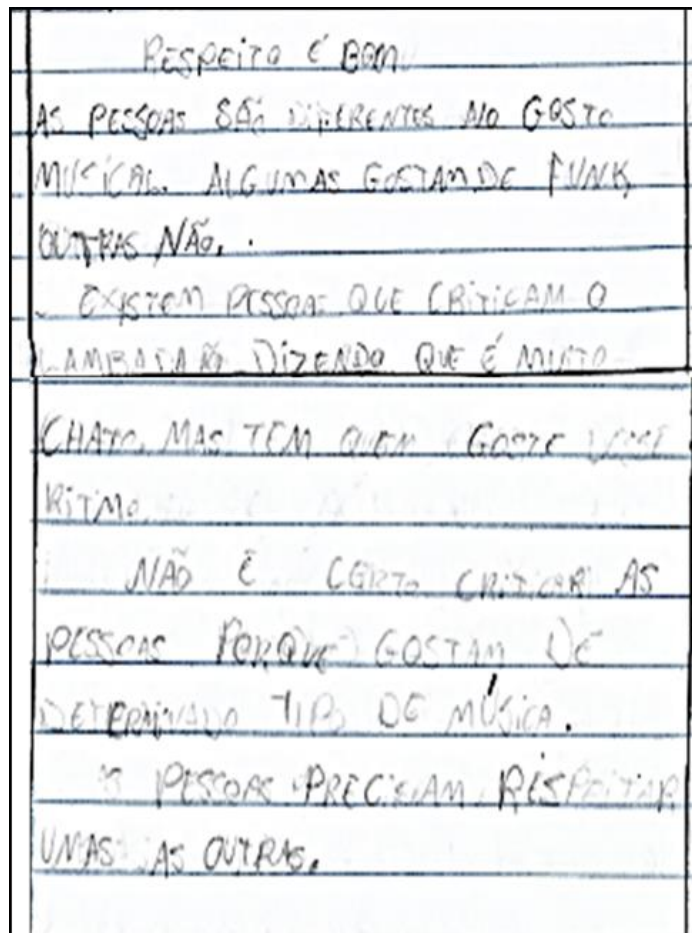 RESPEITO É BOM
AS PESSOAS SÃO DIFERENTES NO GOSTO
MUSICAL. ALGUMAS GOSTAM DE FUNK,
OUTRAS NÃO.
EXISTEM PESSOAS QUE CRITICAM O
LAMBADÃO DIZENDO QUE É MUITO
CHATO, MAS TEM QUEM GOSTE DESSE
RITMO.
NÃO É CERTO CRITICAR AS
PESSOAS PORQUE GOSTAM DE
DETERMINADO TIPO DE MÚSICA.
AS PESSOAS PRECISAM RESPEITAR
UMAS AS OUTRAS.